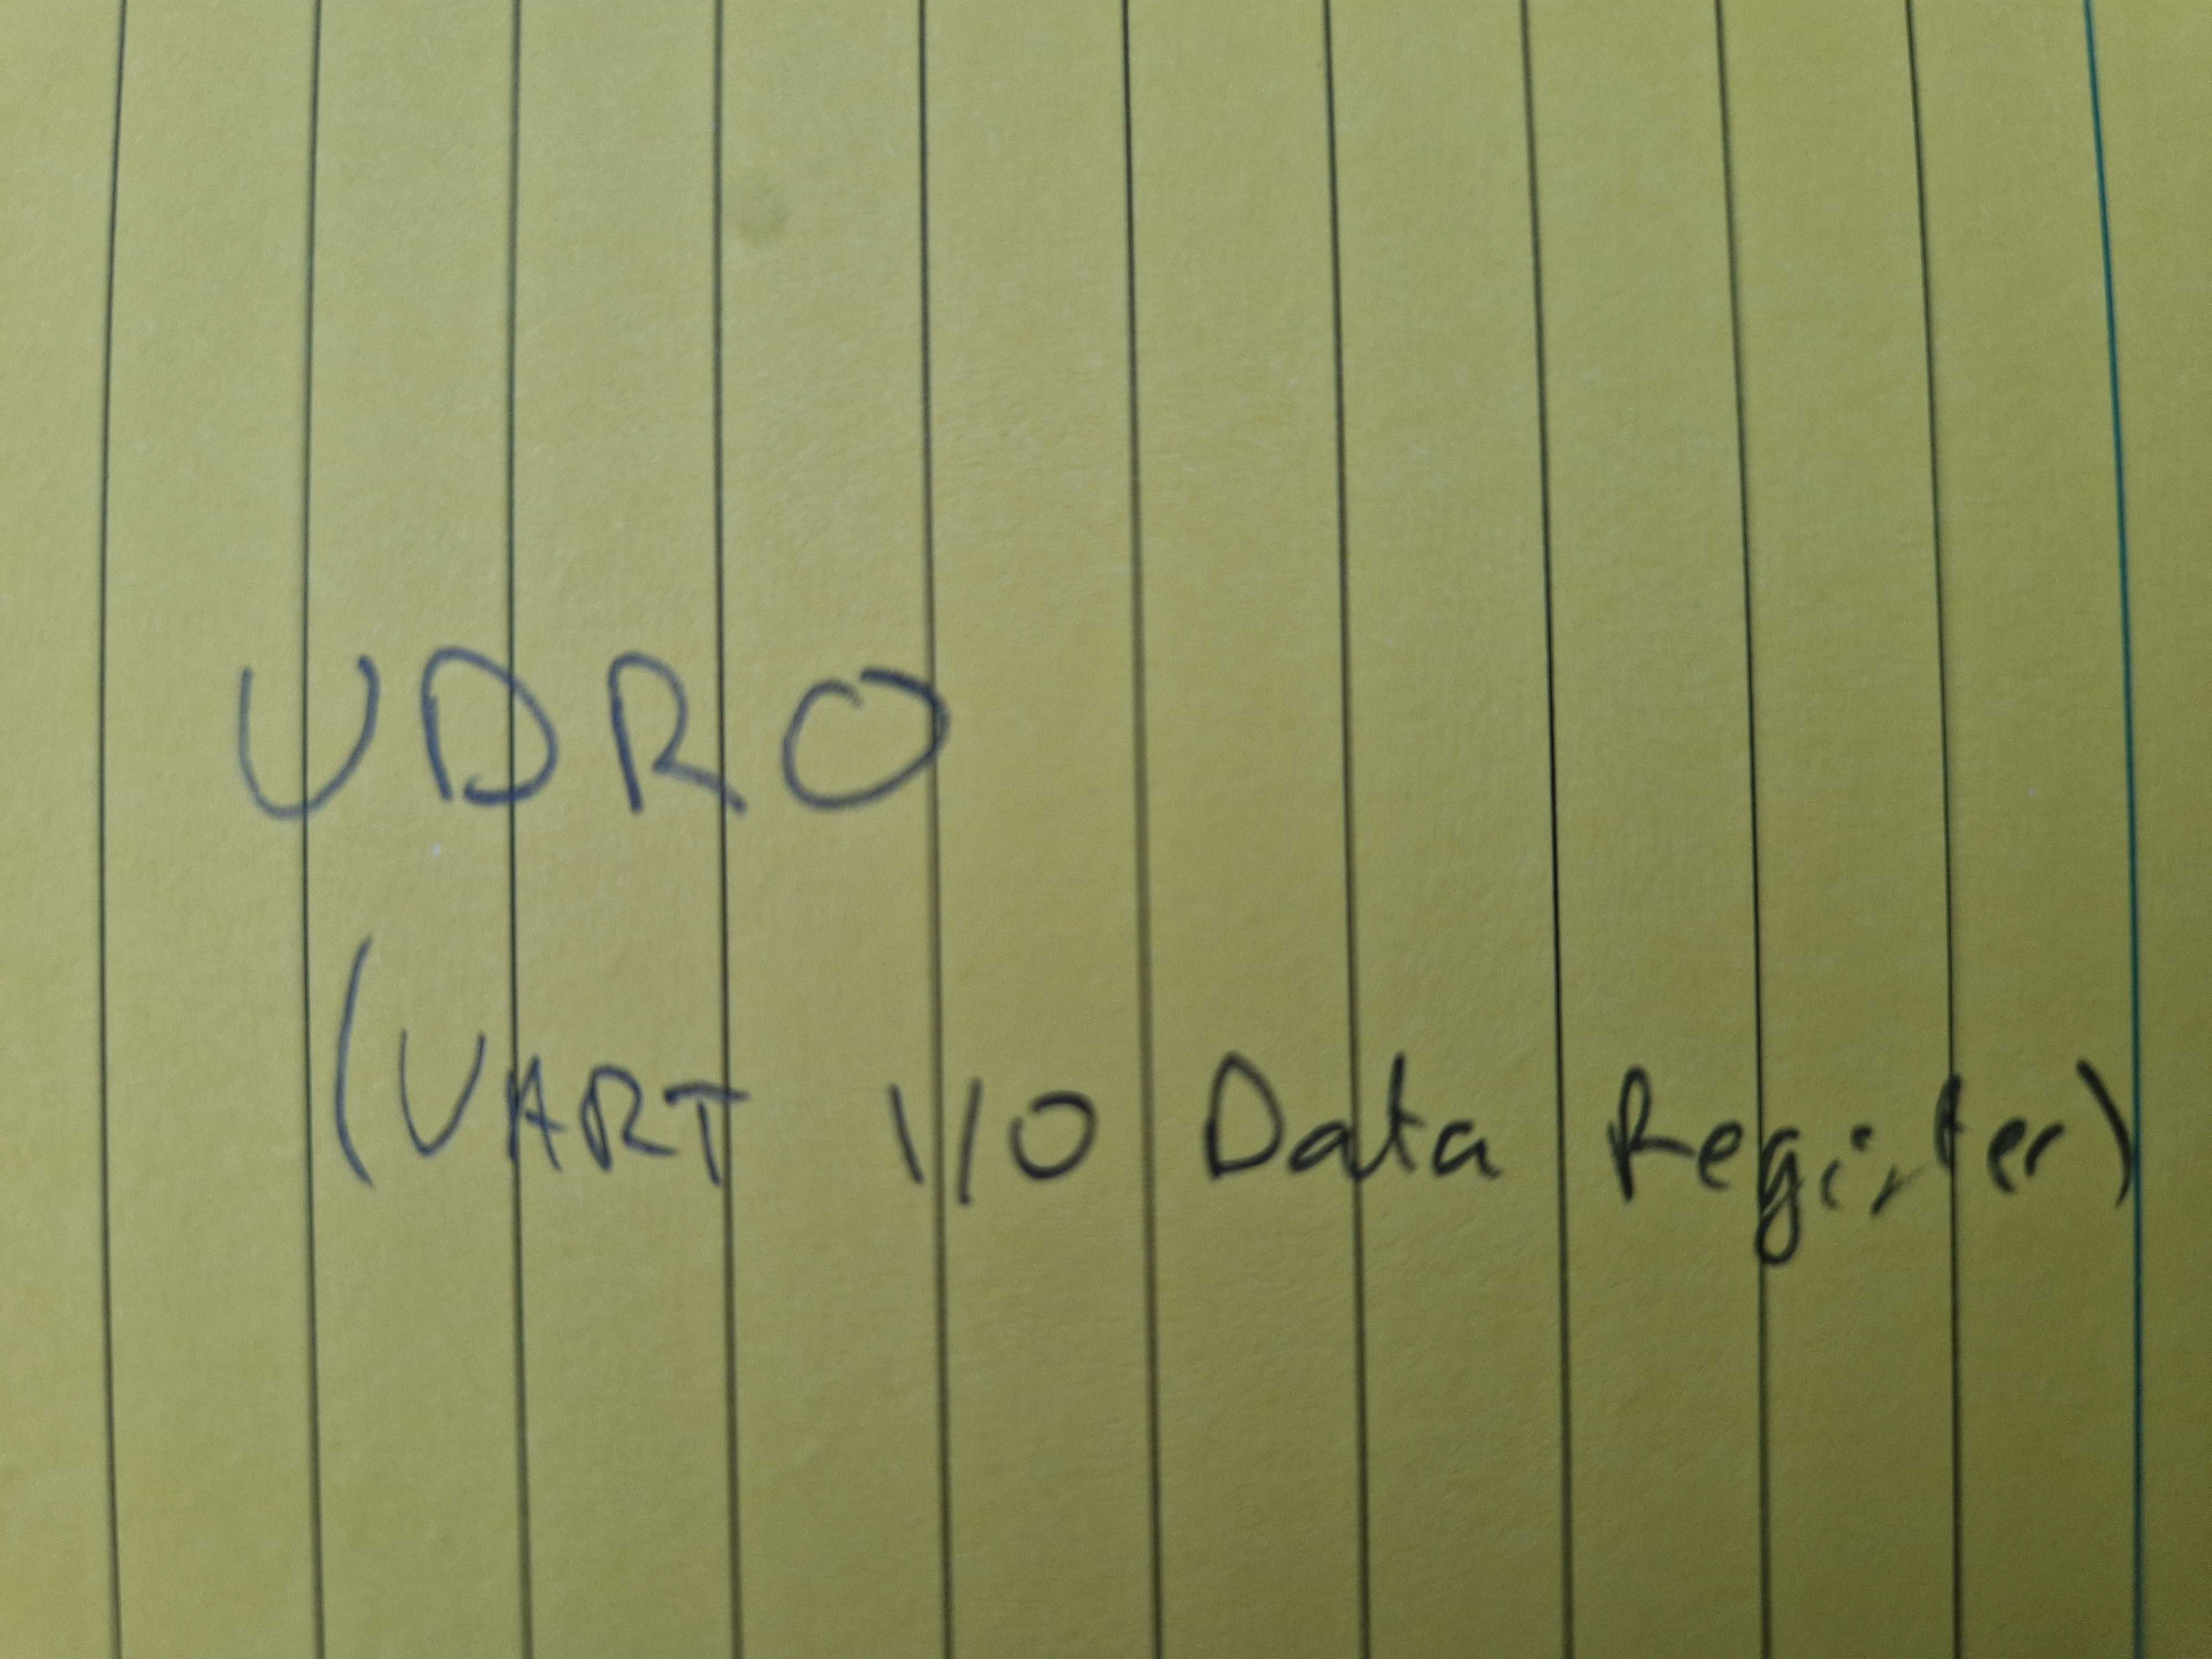 UDR0
(UART I/O Data Register)